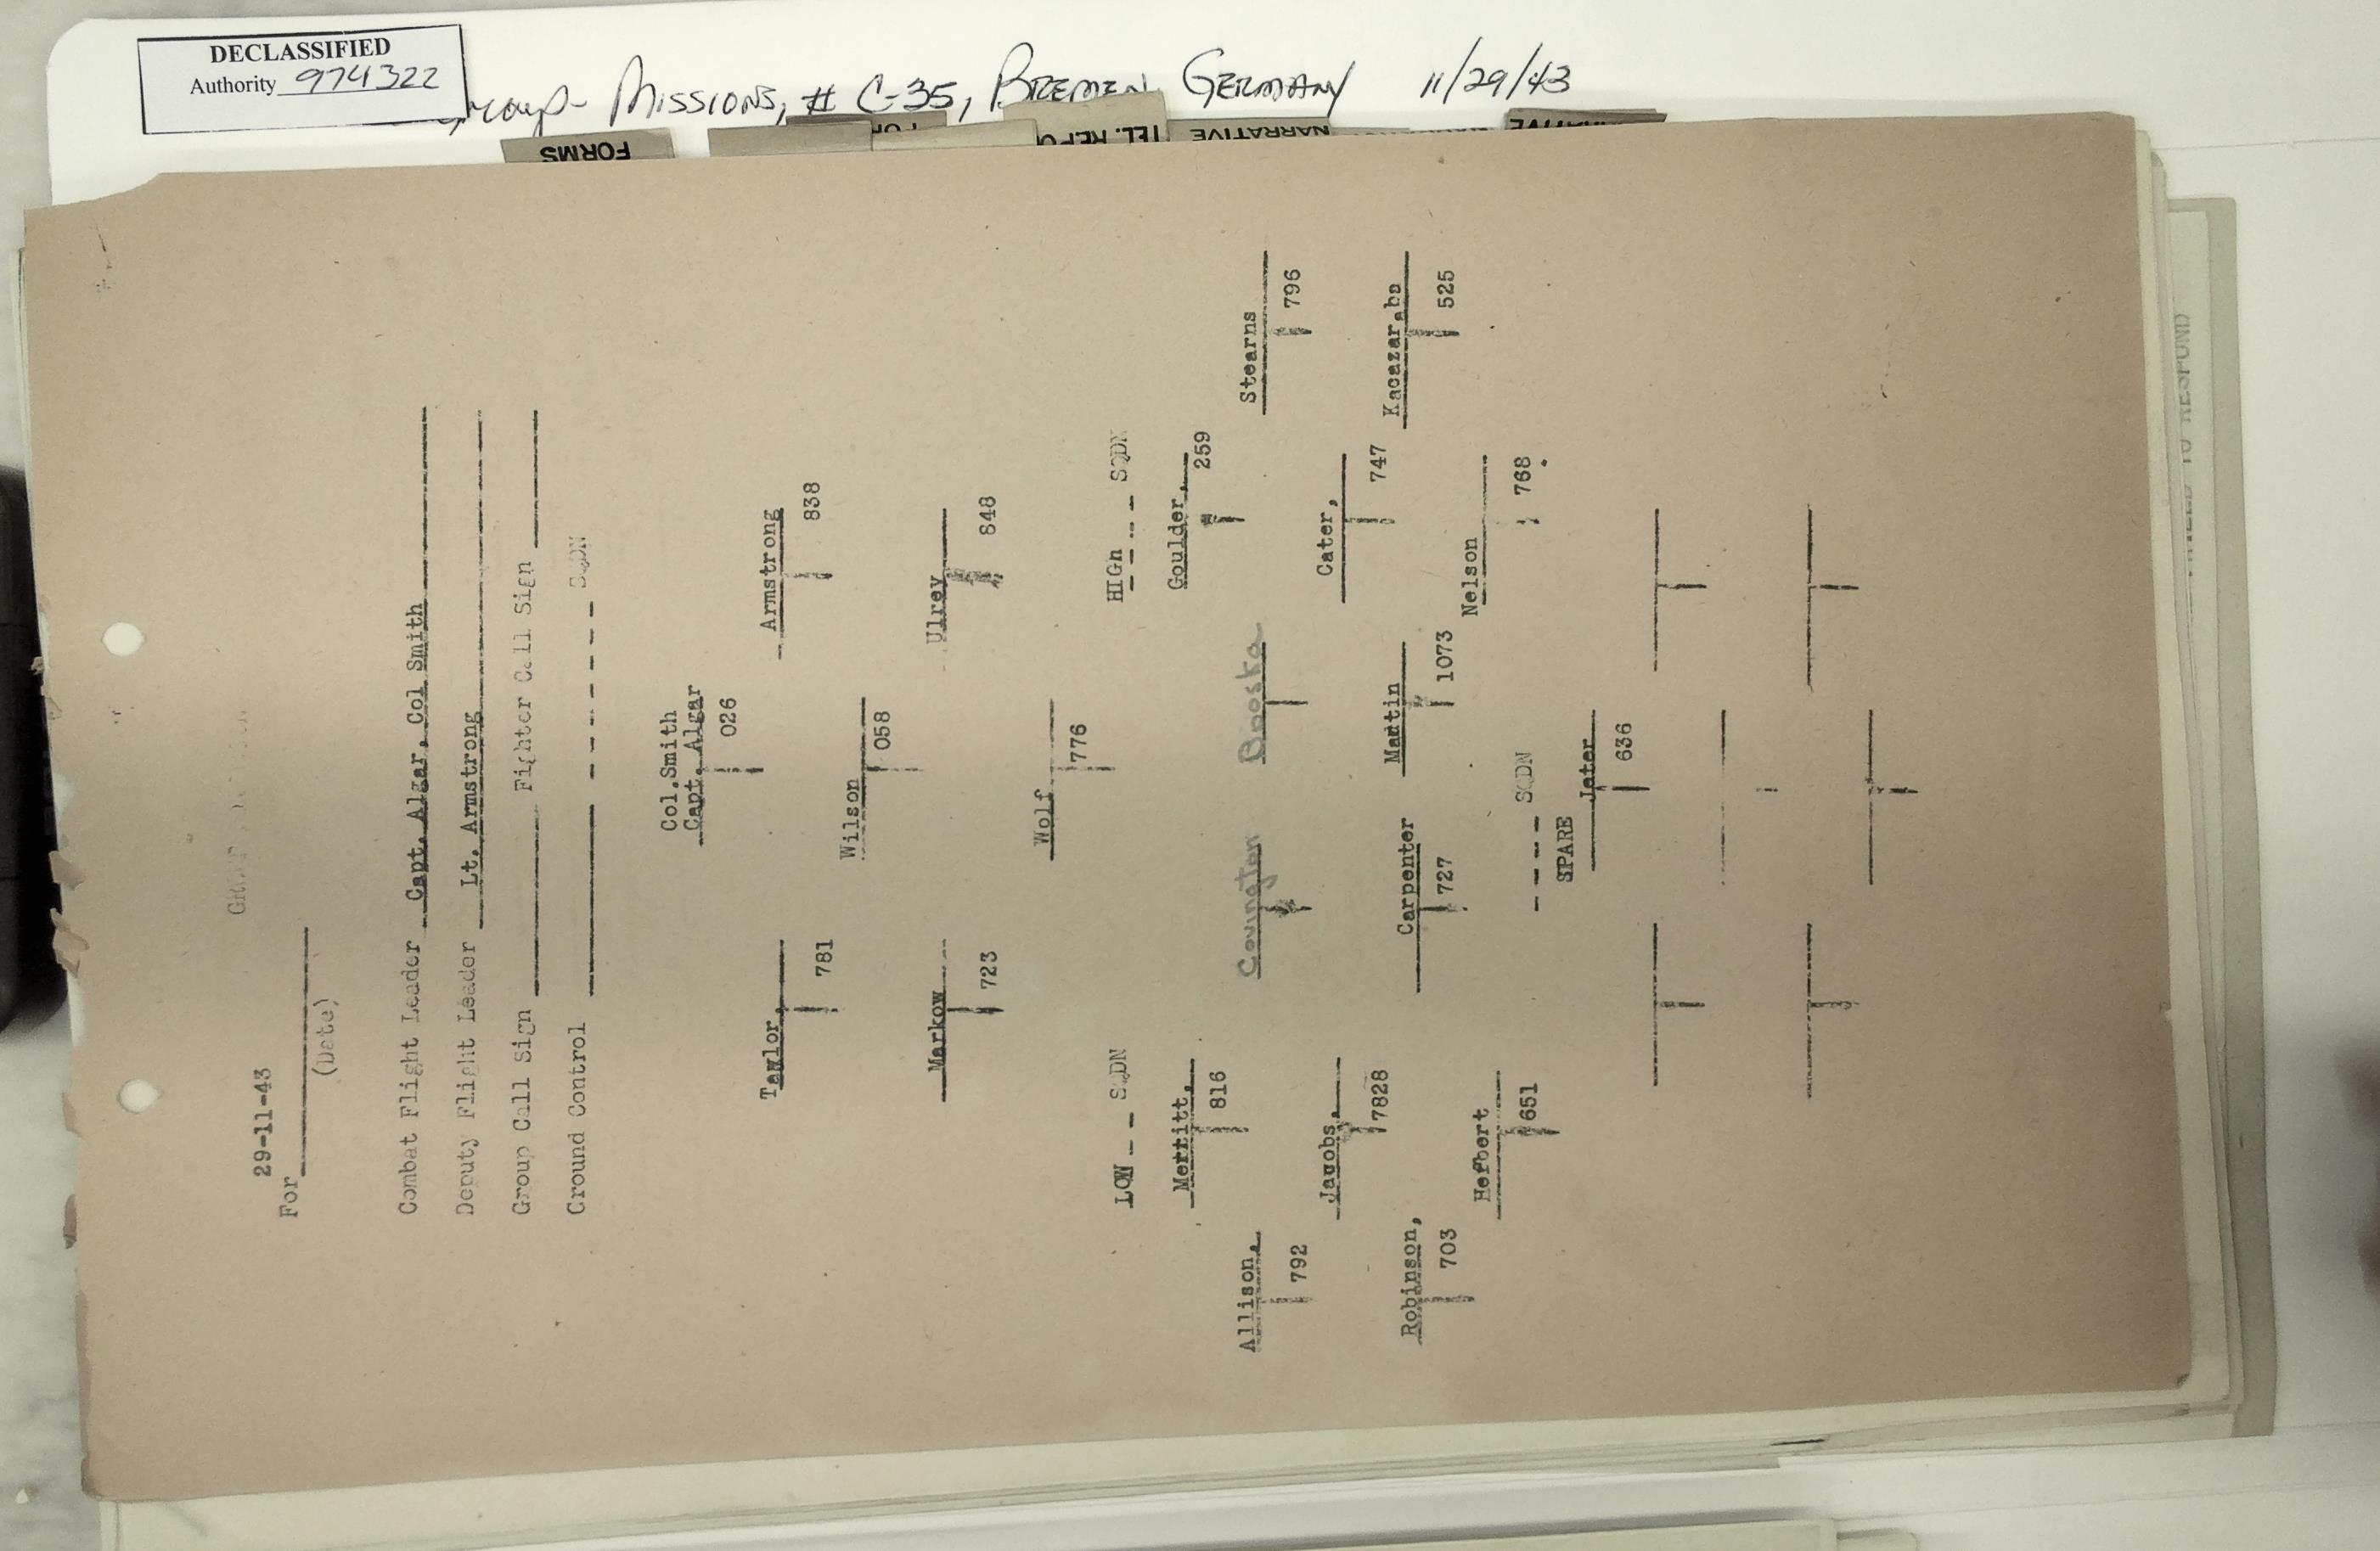 DECLASSIFIED
Authority 974322
Group- MISSIONS, # C-35, BREMEN, GERMANY 11/29/43
FORMS
TEL. REPO
NARRATIVE
29-11-43
For
(Date)
Combat Flight Leader Capt. Algar, Col Smith
Deputy Flight Leader Lt. Armstrong
Group Call Sign Fighter Call Sign
Ground Control SQDN
Col.Smith
Capt. Algar
026
Taylor, Armstrong
781 838
Wilson
058
Markow Ulrey
723 848
Wolf
776
LOW SQDN HIGH SQDN
Merritt, Goulder,
816 259
Allison, Covington Stearns
792 796
Jacobs, Cater,
7828 747
Robinson, Carpenter Martin Kacazaraba
703 727 1073 525
Herbert Nelson
651 768
SQDN
SPARE
Jeter
636